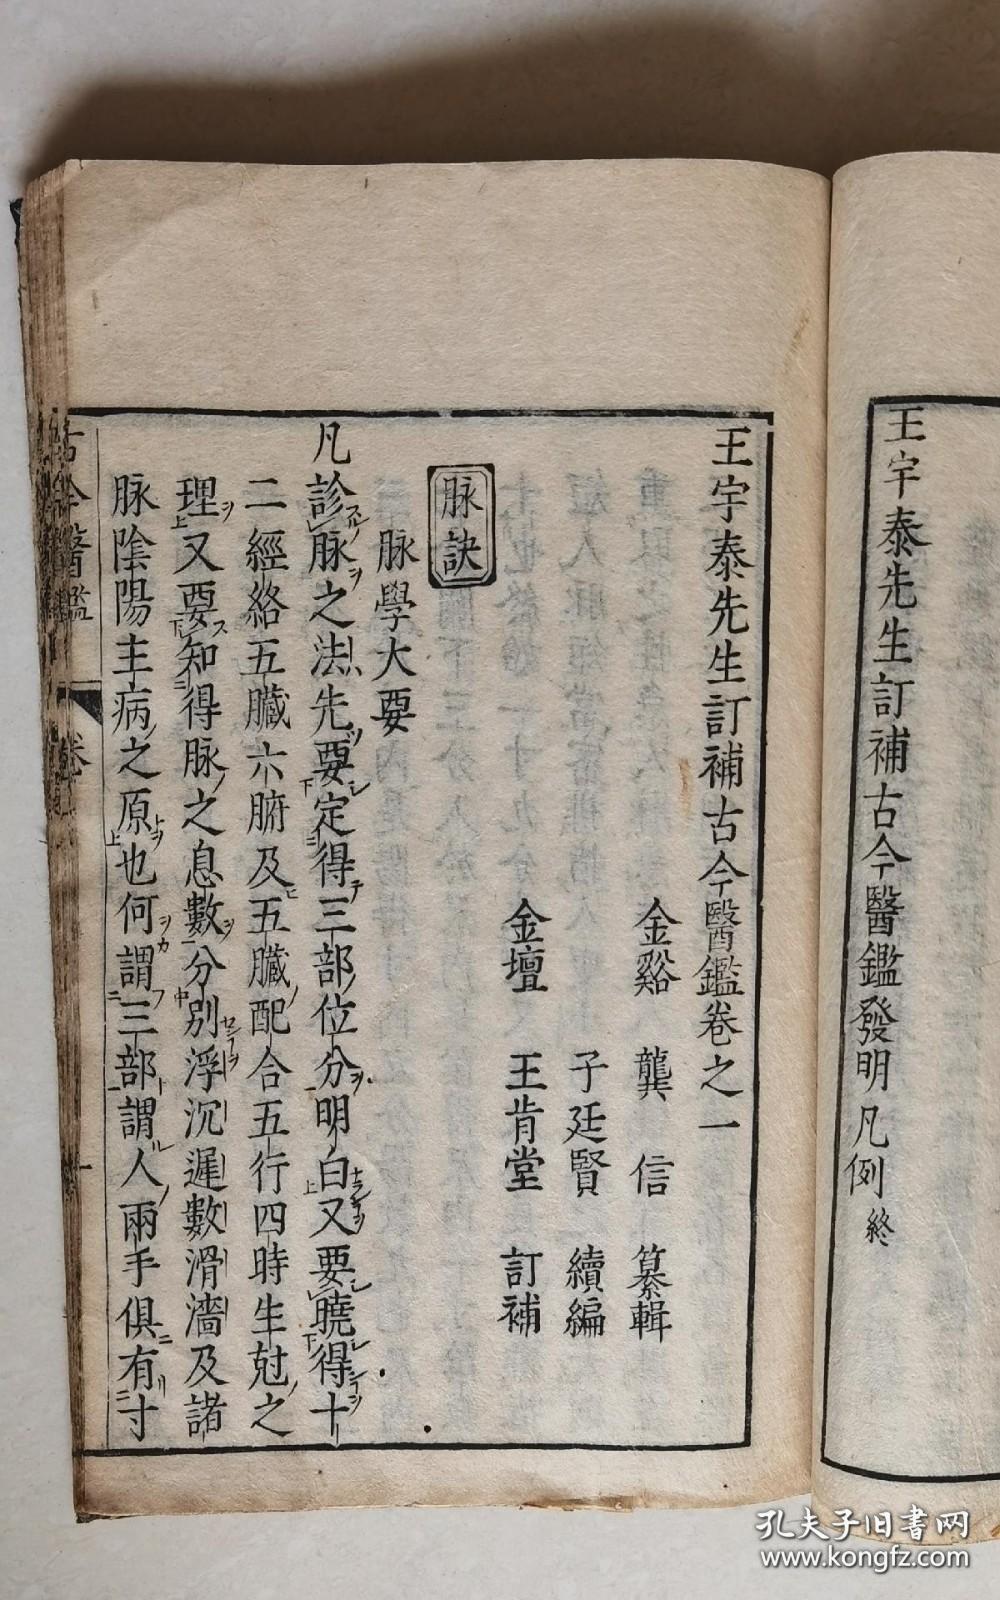 王宇泰先生訂補古今醫鑑發明凡例終
王宇泰先生訂補古今醫鑑卷之一
金谿 龔信 纂輯
子廷賢 續編
金壇 王肯堂 訂補
脉訣
脉學大要
凡診脉之法先要定得三部位分明白又要曉得十
二經絡五臟六腑及五臟配合五行四時生尅之
理又要知得脉之息數分別浮沉遲數滑濇及諸
脉陰陽主病之原也何謂三部謂人兩手俱有寸
古今醫鑑
卷一
一
孔夫子旧书网
www.kongfz.com